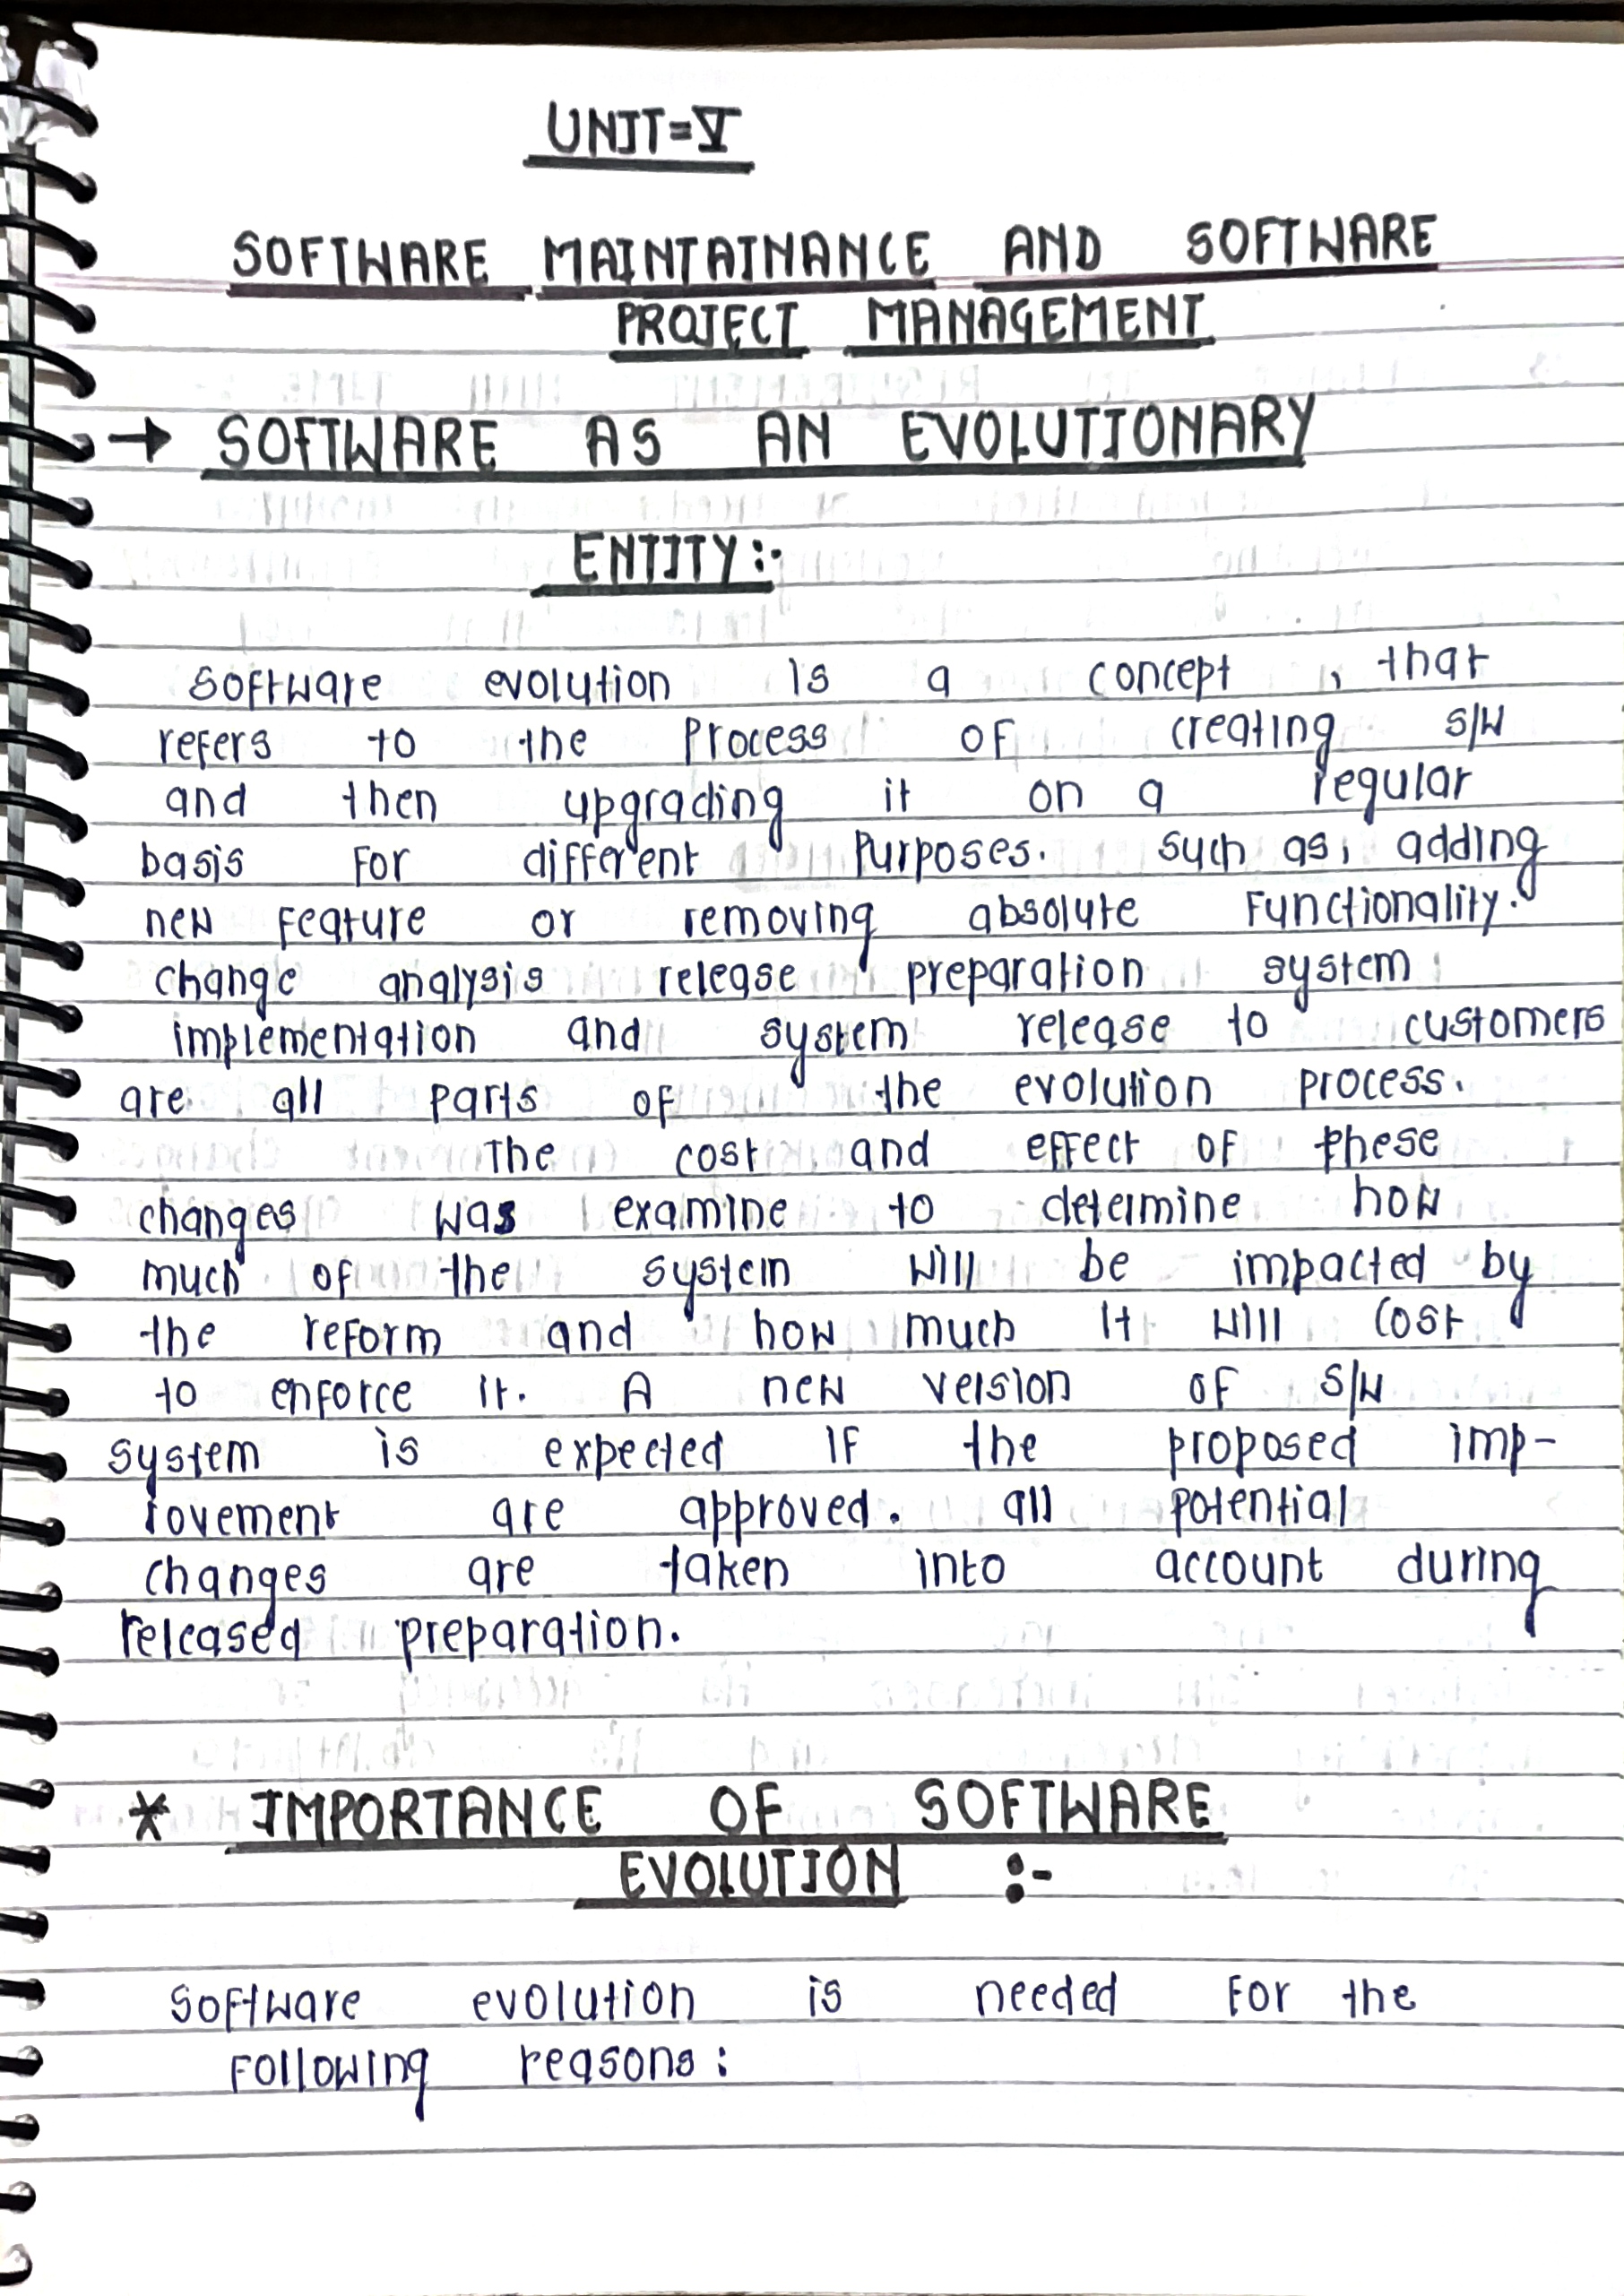 UNIT=V
SOFTWARE MAINTAINANCE AND SOFTWARE
PROJECT MANAGEMENT
→ SOFTWARE AS AN EVOLUTIONARY
ENTITY:-
Software evolution is a concept, that
refers to the Process of creating s/w
and then upgrading it on a regular
basis for different Purposes. Such as, adding
new feature or removing absolute functionality.
change analysis release preparation system
implementation and system release to customers
are all parts of the evolution process.
The cost and effect of these
changes was examine to determine how
much of the system will be impacted by
the reform and how much it will cost
to enforce it. A new version of s/w
system is expected if the proposed imp-
rovement are approved. all potential
changes are taken into account during
released preparation.
* IMPORTANCE OF SOFTWARE
EVOLUTION :-
Software evolution is needed for the
following reasons: